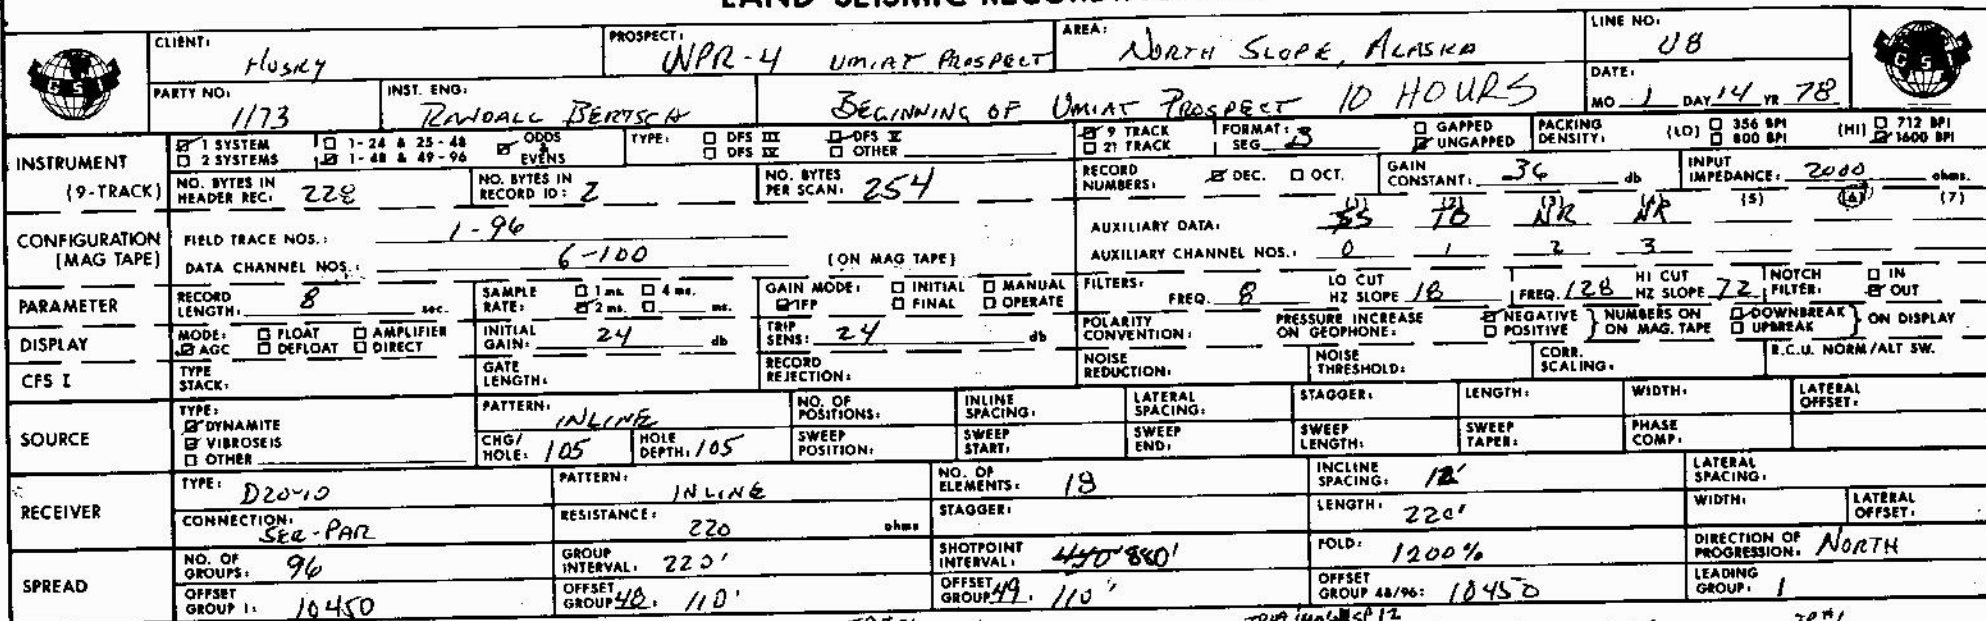 LAND SEISMIC
CLIENT: Husky PROSPECT: NPR-4 UMIAT PROSPECT AREA: NORTH SLOPE, ALASKA LINE NO: UB
GSI GSI
PARTY NO: 1173 INST. ENG: RANDALL BERTSCH BEGINNING OF UMIAT PROSPECT 10 HOURS DATE: MO 1 DAY 14 YR 78
INSTRUMENT (9-TRACK)
1 SYSTEM 1-24 & 25-48 ODDS & EVENS TYPE: DFS III DFS V 9 TRACK FORMAT: SEG B GAPPED PACKING DENSITY: (LO) 356 BPI (HI) 712 BPI
2 SYSTEMS 1-48 & 49-96 DFS IV OTHER 21 TRACK UNGAPPED 800 BPI 1600 BPI
NO. BYTES IN HEADER REC: 228 NO. BYTES IN RECORD ID: 2 NO. BYTES PER SCAN: 254 RECORD NUMBERS: DEC. OCT. GAIN CONSTANT: 36 db INPUT IMPEDANCE: 2000 ohms.
CONFIGURATION [MAG TAPE]
FIELD TRACE NOS.: 1-96 AUXILIARY DATA: (1) SS (2) TB (3) NR (4) NR (5) (6) (7)
DATA CHANNEL NOS.: 6-100 [ON MAG TAPE] AUXILIARY CHANNEL NOS.: 0 1 2 3
PARAMETER RECORD LENGTH: 8 sec. SAMPLE RATE: 1 ms. 4 ms. 2 ms. ms. GAIN MODE: INITIAL MANUAL IFP FINAL OPERATE FILTERS: FREQ. 8 LO CUT HZ SLOPE 18 FREQ. 128 HI CUT HZ SLOPE 72 NOTCH FILTER: IN OUT
DISPLAY MODE: FLOAT AMPLIFIER AGC DEFLOAT DIRECT INITIAL GAIN: 24 db TRIP SENS: 24 db POLARITY CONVENTION: PRESSURE INCREASE ON GEOPHONE: NEGATIVE POSITIVE } NUMBERS ON MAG. TAPE DOWNBREAK UPBREAK } ON DISPLAY
CFS I TYPE STACK: GATE LENGTH: RECORD REJECTION: NOISE REDUCTION: NOISE THRESHOLD: CORR. SCALING: R.C.U. NORM/ALT SW.
SOURCE TYPE: DYNAMITE VIBROSEIS OTHER
PATTERN: INLINE NO. OF POSITIONS: INLINE SPACING: LATERAL SPACING: STAGGER: LENGTH: WIDTH: LATERAL OFFSET:
CHG/HOLE: 105 HOLE DEPTH: 105 SWEEP POSITION: SWEEP START: SWEEP END: SWEEP LENGTH: SWEEP TAPER: PHASE COMP:
RECEIVER TYPE: PATTERN: INLINE NO. OF ELEMENTS: 18 INCLINE SPACING: 12' LATERAL SPACING:
CONNECTION: SER-PAR RESISTANCE: 220 ohms STAGGER: LENGTH: 220' WIDTH: LATERAL OFFSET:
SPREAD NO. OF GROUPS: 96 GROUP INTERVAL: 220' SHOTPOINT INTERVAL: 440' 880' FOLD: 1200% DIRECTION OF PROGRESSION: NORTH
OFFSET GROUP 1: 10450 OFFSET GROUP 48: 110' OFFSET GROUP 49: 110' OFFSET GROUP 48/96: 10450 LEADING GROUP: 1